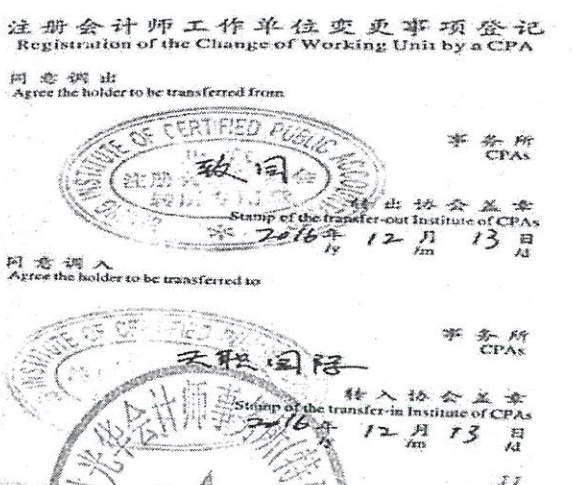 注册会计师工作单位变更事项登记
Registration of the Change of Working Unit by a CPA
同意调出
Agree the holder to be transferred from
INSTITUTE OF CERTIFIED PUBLIC ACCOUNT
致同
事务所
CPAs
转出协会盖章
Stamp of the transfer-out Institute of CPAs
2016年 12月 13日
/y /m /d
同意调入
Agree the holder to be transferred to
INSTITUTE OF
天职国际
事务所
CPAs
转入协会盖章
Stamp of the transfer-in Institute of CPAs
2016年 12月 13日
/y /m /d
光华会计师事务所(特
11